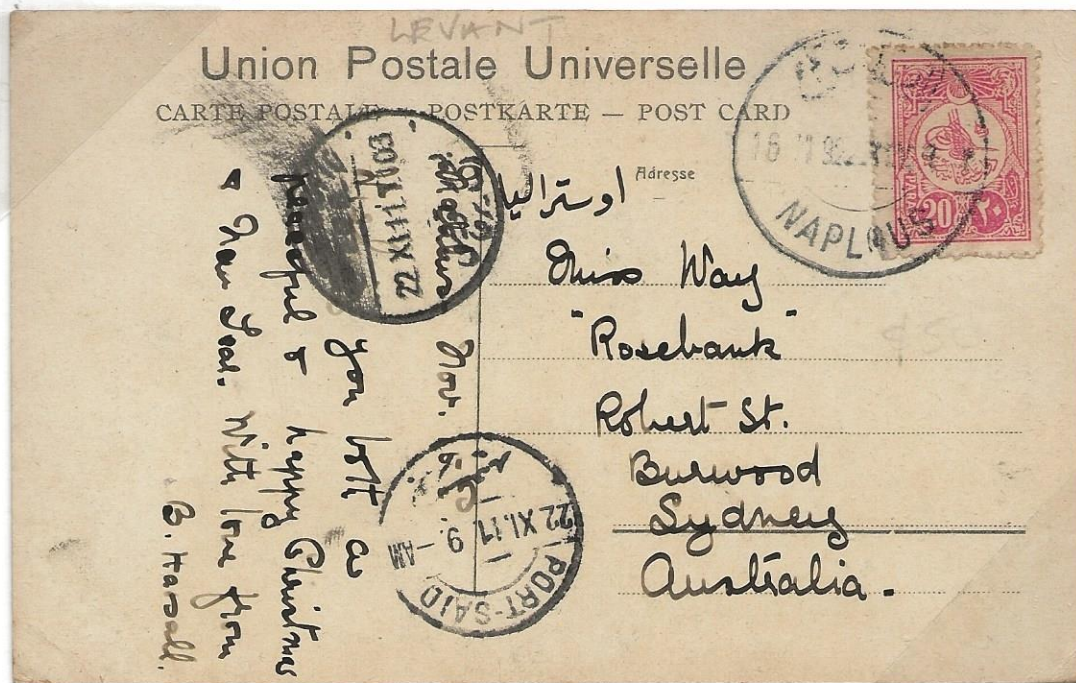 LEVANT
Union Postale Universelle
CARTE POSTALE — POSTKARTE — POST CARD
Adresse
اوستراليا
Miss Way
"Rosebank"
Robert St.
Burwood
Sydney
Australia.
NAPLOUS
20 ٢٠
22 XI 11
PORT-SAID
22 XI. 11 9 - AM
Nov.
you both a
peaceful & happy Christmas
& New Year. With love from
B.